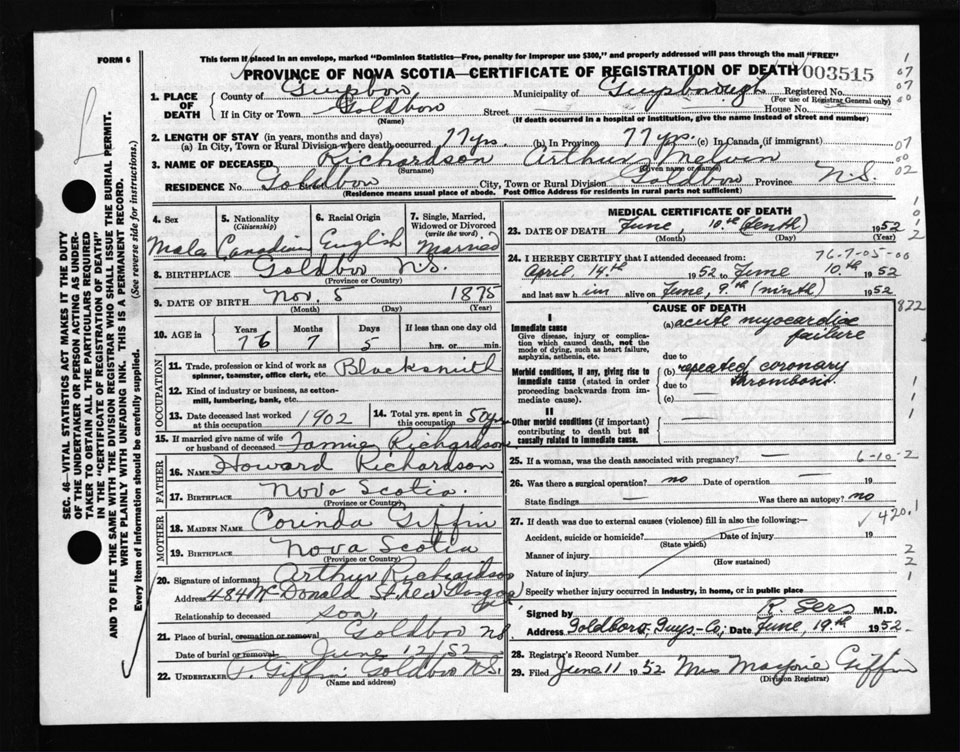 FORM 6
This form if placed in an envelope, marked "Dominion Statistics—Free, penalty for improper use $300," and properly addressed will pass through the mail "FREE"
PROVINCE OF NOVA SCOTIA—CERTIFICATE OF REGISTRATION OF DEATH 003515
1. PLACE OF DEATH
County of Municipality of Registered No.
(For use of Registrar General only)
If in City or Town Goldboro Street House No.
(Name) (If death occurred in a hospital or institution, give the name instead of street and number)
2. LENGTH OF STAY (in years, months and days)
(a) In City, Town or Rural Division where death occurred 77 yrs. (b) In Province 77 yrs. (c) In Canada (if immigrant)
3. NAME OF DECEASED Richardson Arthur Melvin
(Surname) (Given name or names)
RESIDENCE No. Goldboro Street City, Town or Rural Division Goldboro Province N.S.
(Residence means usual place of abode. Post Office Address for residents in rural parts not sufficient)
4. Sex Male
5. Nationality (Citizenship) Canadian
6. Racial Origin English
7. Single, Married, Widowed or Divorced (write the word) Married
8. BIRTHPLACE Goldboro N.S.
(Province or Country)
9. DATE OF BIRTH Nov. 5 1875
(Month) (Day) (Year)
10. AGE in Years Months Days If less than one day old
76 7 5 hrs. or min.
OCCUPATION
11. Trade, profession or kind of work as spinner, teamster, office clerk, etc. Blacksmith
12. Kind of industry or business, as cotton-mill, lumbering, bank, etc.
13. Date deceased last worked at this occupation 1902
14. Total yrs. spent in this occupation 50 yrs
15. If married give name of wife or husband of deceased Richardson
FATHER
16. NAME Howard Richardson
17. BIRTHPLACE Nova Scotia.
(Province or Country)
MOTHER
18. MAIDEN NAME Corinda Giffin
19. BIRTHPLACE Nova Scotia
(Province or Country)
20. Signature of informant Arthur Richardson
Address 484 McDonald St. New Glasgow
Relationship to deceased son
21. Place of burial, cremation or removal Goldboro NS
Date of burial or removal June 12/52
22. UNDERTAKER P. Giffin Goldboro N.S.
(Name and address)
MEDICAL CERTIFICATE OF DEATH
23. DATE OF DEATH June, 10th (tenth) 1952
(Month) (Day) (Year)
76-7-05-00
24. I HEREBY CERTIFY that I attended deceased from:
April 14th 1952 to June 10th 1952
and last saw him alive on June, 9th (ninth) 1952
822
CAUSE OF DEATH
I
Immediate cause
Give disease, injury or complication which caused death, not the mode of dying, such as heart failure, asphyxia, asthenia, etc.
(a) acute myocardiac failure
due to
Morbid conditions, if any, giving rise to immediate cause (stated in order proceeding backwards from immediate cause).
(b) repeated coronary thrombosis.
due to
(c)
II
Other morbid conditions (if important) contributing to death but not causally related to immediate cause.
25. If a woman, was the death associated with pregnancy? — 6-10-2
26. Was there a surgical operation? no Date of operation 19
State findings — Was there an autopsy? no
420.1
27. If death was due to external causes (violence) fill in also the following:—
Accident, suicide or homicide? Date of injury 19
(State which)
Manner of injury
(How sustained)
Nature of injury
Specify whether injury occurred in industry, in home, or in public place
Signed by M.D.
Address Goldboro, Guys-Co; Date June, 19th 1952
28. Registrar's Record Number
29. Filed June 11 1952 Mrs Marjorie Giffin
(Division Registrar)
SEC. 46—VITAL STATISTICS ACT MAKES IT THE DUTY
OF THE UNDERTAKER OR PERSON ACTING AS UNDER-
TAKER TO OBTAIN ALL THE PARTICULARS REQUIRED
IN THE "CERTIFICATE OF REGISTRATION OF DEATH"
AND TO FILE THE SAME WITH THE DIVISION REGISTRAR WHO SHALL ISSUE THE BURIAL PERMIT.
WRITE PLAINLY WITH UNFADING INK. THIS IS A PERMANENT RECORD.
Every item of information should be carefully supplied. (See reverse side for instructions.)